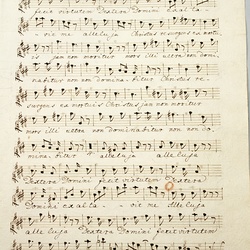 fecit virtutem Dextera Domini exalta-
vit me alleluja Christus resurgens ex mortu-
is jam non moritur mors illi ultra non domi-
nabitur non non dominabitur Christus re-
surgens ex mortuis Christus jam non moritur
mors illi ultra non dominabitur non non do-
minabitur alleluja alleluja
Dextera Domini fecit virtutem Dextera
Domini exalta- vit me Alleluja
Dextera Domini Dextera Domini fecit virtutem